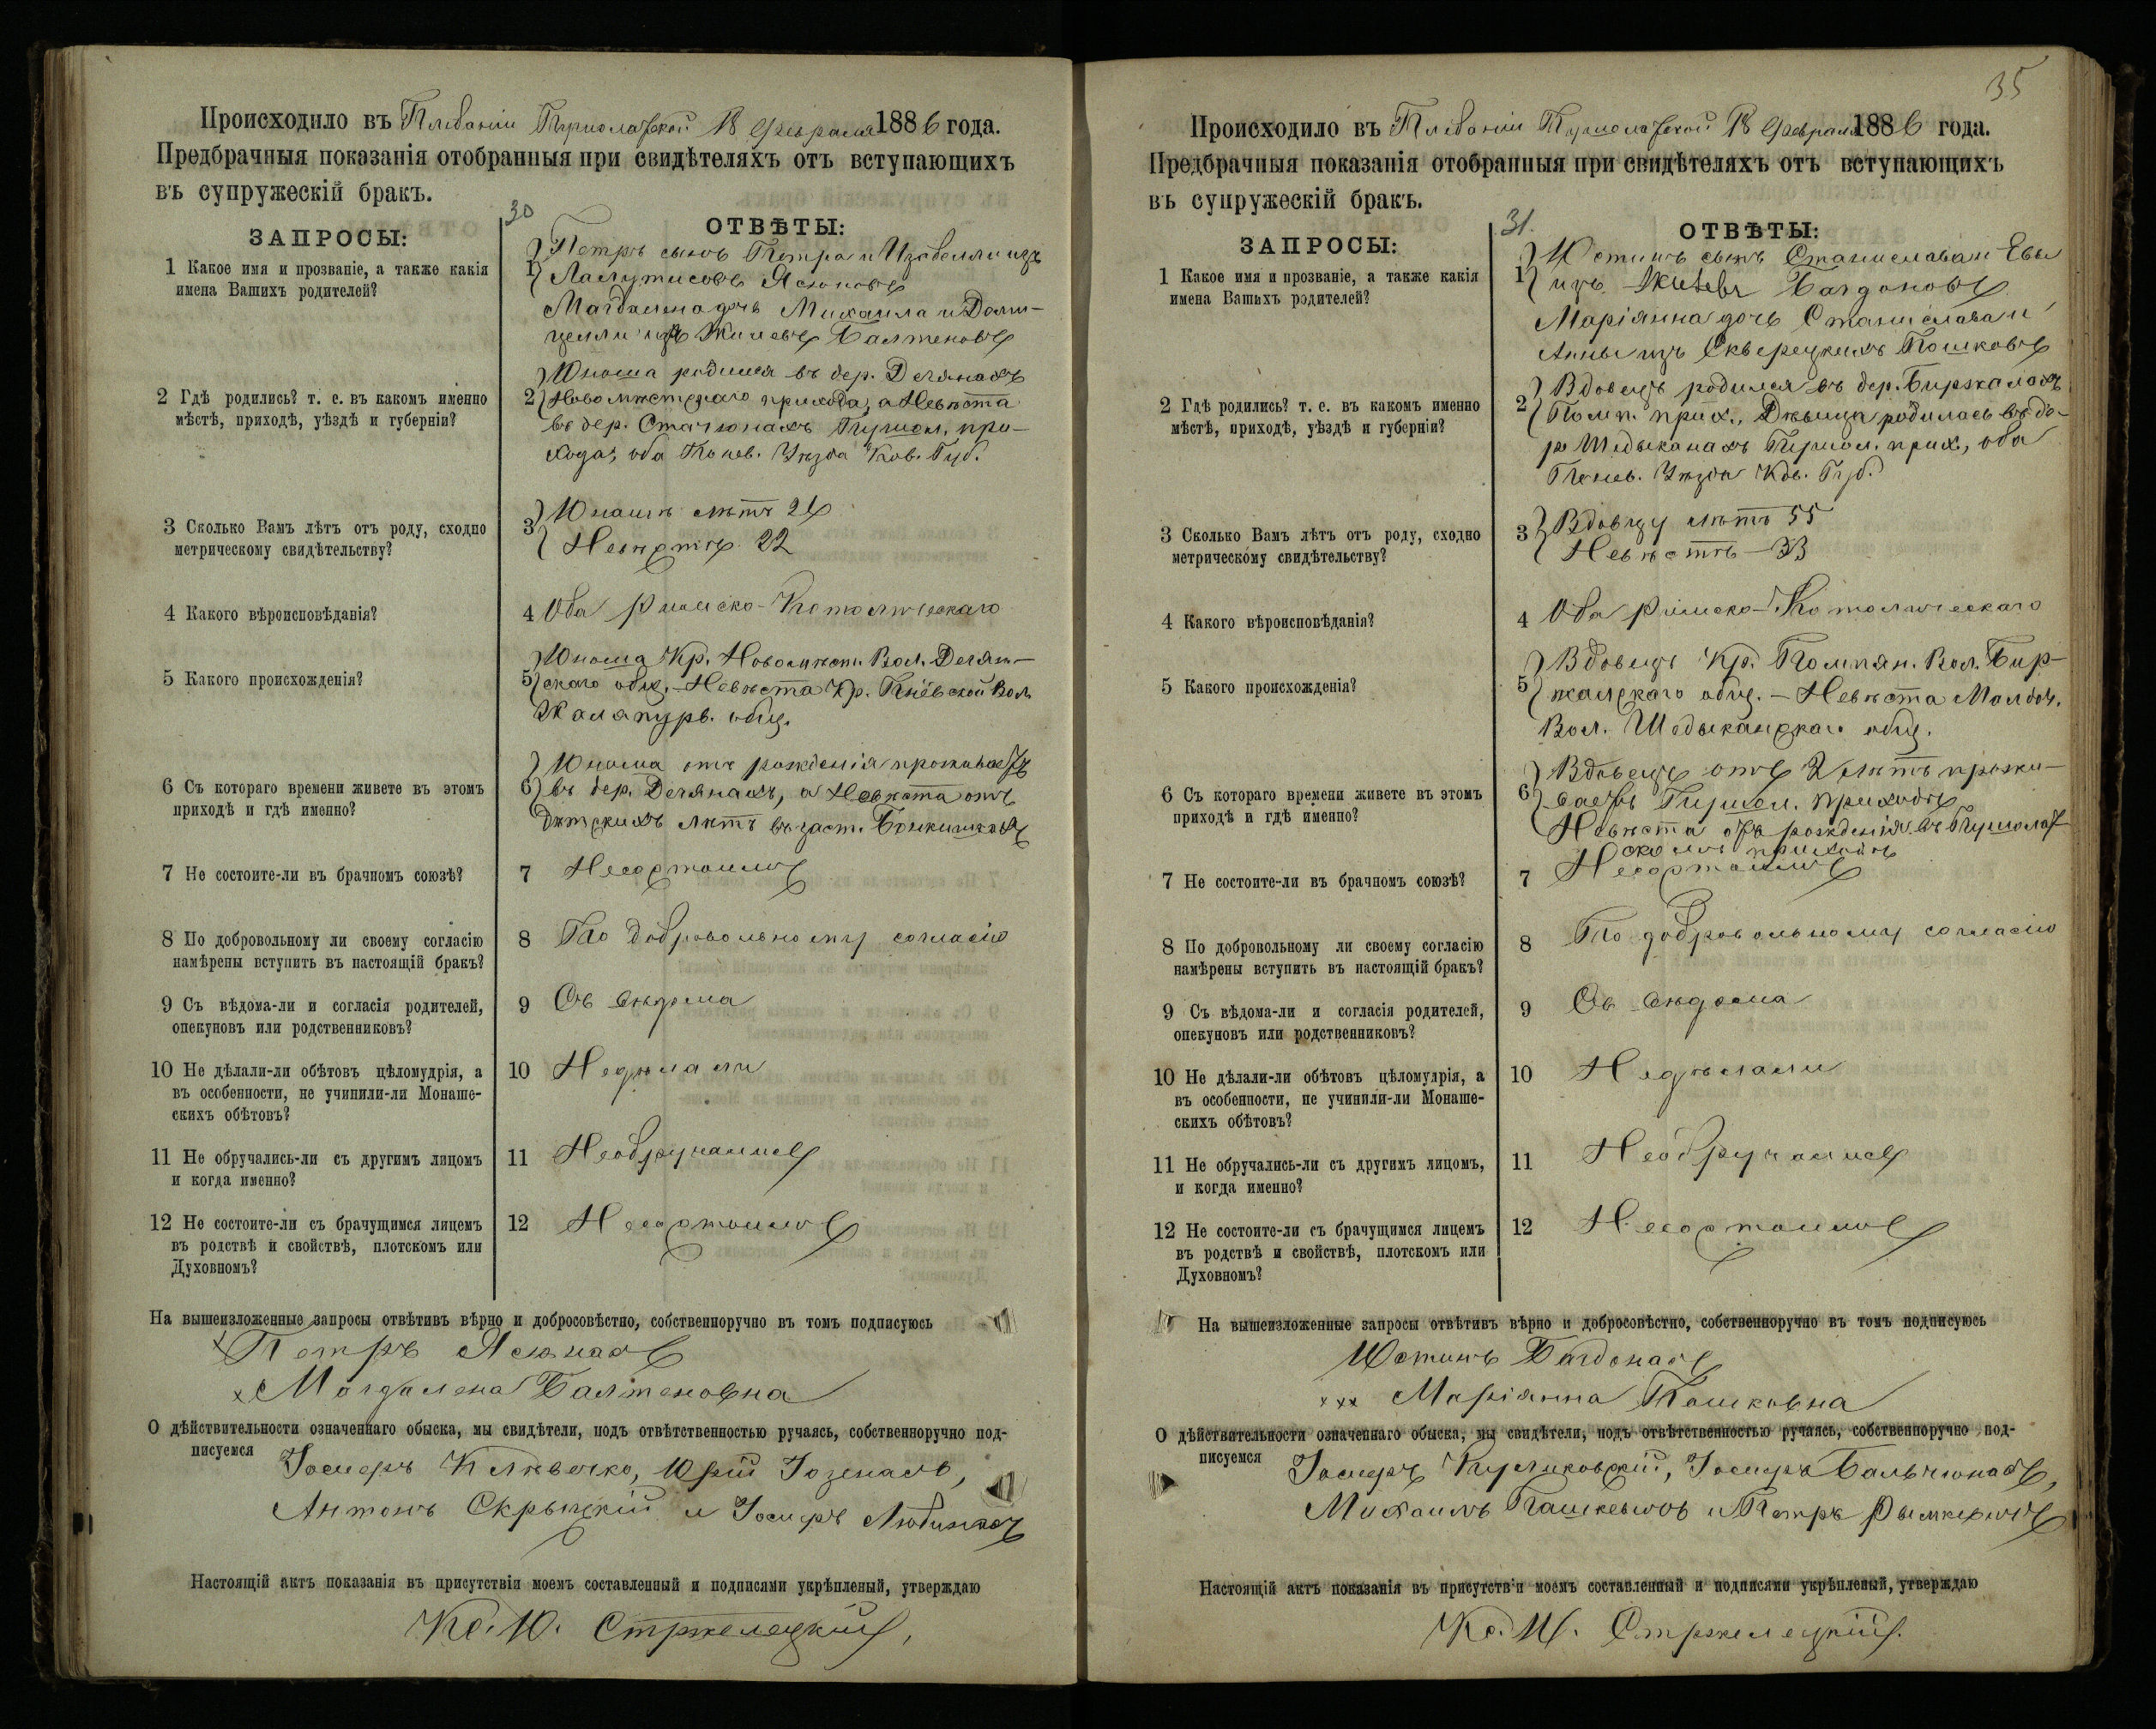 Происходило въ Плебаніи 18 Февраля 1886 года.
Предбрачныя показанія отобранныя при свидѣтеляхъ отъ вступающихъ
въ супружескій бракъ.
30
ЗАПРОСЫ:
ОТВѢТЫ:
1 Какое имя и прозваніе, а также какія
имена Вашихъ родителей?
1 Петръ сынъ Петра и Изабелли изъ
Магдалена дочь Михаила и Доми-
целли изъ Балтеновъ
2 Гдѣ родились? т. е. въ какомъ именно
мѣстѣ, приходѣ, уѣздѣ и губерніи?
Юноша родился въ дер. Дегянахъ
2 Новомѣстскаго прихода, а Невѣста
въ дер. Стагюнахъ Пушол. при-
хода, оба Понев. Уѣзда Ков. Губ.
3 Сколько Вамъ лѣтъ отъ роду, сходно
метрическому свидѣтельству?
3 Юношѣ лѣтъ
Невѣстѣ 22
4 Какого вѣроисповѣданія?
4 Оба Римско-Католическаго
5 Какого происхожденія?
Юноша Кр. Новомѣст. Вол. Дегян-
5 скаго общ. - Невѣста Кр. Вол.
общ.
6 Съ котораго времени живете въ этомъ
приходѣ и гдѣ именно?
Юноша отъ рожденія проживаетъ
6 въ дер. Дегянахъ, а Невѣста отъ
дѣтскихъ лѣтъ въ заст.
7 Не состоите-ли въ брачномъ союзѣ?
7 Несостоимъ
8 По добровольному ли своему согласію
намѣрены вступить въ настоящій бракъ?
8 По добровольному согласію
9 Съ вѣдома-ли и согласія родителей,
опекуновъ или родственниковъ?
9 Съ вѣдома
10 Не дѣлали-ли обѣтовъ цѣломудрія, а
въ особенности, не учинили-ли Монаше-
скихъ обѣтовъ?
10 Недѣлали
11 Не обручались-ли съ другимъ лицомъ
и когда именно?
11 Необручались
12 Не состоите-ли съ брачущимся лицемъ
въ родствѣ и свойствѣ, плотскомъ или
Духовномъ?
12 Несостоимъ
На вышеизложенные запросы отвѣтивъ вѣрно и добросовѣстно, собственноручно въ томъ подписуюсь
x Петръ Ясюнасъ
x Магдалена Балтеновна
О дѣйствительности означеннаго обыска, мы свидѣтели, подъ отвѣтственностью ручаясь, собственноручно под-
писуемся Іосифъ Юрій Іозенасъ,
Антонъ и Іосифъ
Настоящій актъ показанія въ присутствіи моемъ составленный и подписями укрѣпленый, утверждаю
Кс. Ю. Стржелецкій,
35
Происходило въ Плебаніи 18 Февраля 1886 года.
Предбрачныя показанія отобранныя при свидѣтеляхъ отъ вступающихъ
въ супружескій бракъ.
31.
ЗАПРОСЫ:
ОТВѢТЫ:
1 Какое имя и прозваніе, а также какія
имена Вашихъ родителей?
Юстинъ сынъ Станислава и Евы
1 изъ Багдоновъ
Маріянна дочь Станислава и
Анны изъ Скверецкихъ Пошковъ
2 Гдѣ родились? т. е. въ какомъ именно
мѣстѣ, приходѣ, уѣздѣ и губерніи?
Вдовецъ родился въ дер. Биржалахъ
2 Помп. прих., Дѣвица родилась въ де-
р Шедыканахъ Пушол. прих., оба
Понев. Уѣзда Ков. Губ.
3 Сколько Вамъ лѣтъ отъ роду, сходно
метрическому свидѣтельству?
3 Вдовцу лѣтъ 55
Невѣстѣ - 33
4 Какого вѣроисповѣданія?
4 Оба Римско-Католическаго
5 Какого происхожденія?
Вдовецъ Кр. Помпян. Вол. Бир-
5 жалскаго общ. - Невѣста
Вол. Шедыканскаго общ.
6 Съ котораго времени живете въ этомъ
приходѣ и гдѣ именно?
Вдовецъ отъ 2 лѣтъ прожи-
6 ваетъ Пушол. приходѣ
Невѣста отъ рожденія въ Пушолат-
скомъ приходѣ
7 Не состоите-ли въ брачномъ союзѣ?
7 Несостоимъ
8 По добровольному ли своему согласію
намѣрены вступить въ настоящій бракъ?
8 По добровольному согласію
9 Съ вѣдома-ли и согласія родителей,
опекуновъ или родственниковъ?
9 Съ вѣдома
10 Не дѣлали-ли обѣтовъ цѣломудрія, а
въ особенности, не учинили-ли Монаше-
скихъ обѣтовъ?
10 Недѣлали
11 Не обручались-ли съ другимъ лицомъ,
и когда именно?
11 Необручались
12 Не состоите-ли съ брачущимся лицемъ
въ родствѣ и свойствѣ, плотскомъ или
Духовномъ?
12 Несостоимъ
На вышеизложенные запросы отвѣтивъ вѣрно и добросовѣстно, собственноручно въ томъ подписуюсь
Юстинъ Багдонасъ
xxx Маріянна Пошковна
О дѣйствительности означеннаго обыска, мы свидѣтели, подъ отвѣтственностью ручаясь, собственноручно под-
писуемся Іосифъ Іосифъ Бальчюнасъ,
Михаилъ Пашкевичъ и Петръ Рымкевичъ
Настоящій актъ показанія въ присутствіи моемъ составленный и подписями укрѣпленый, утверждаю
Кс. Ю. Стржелецкій.